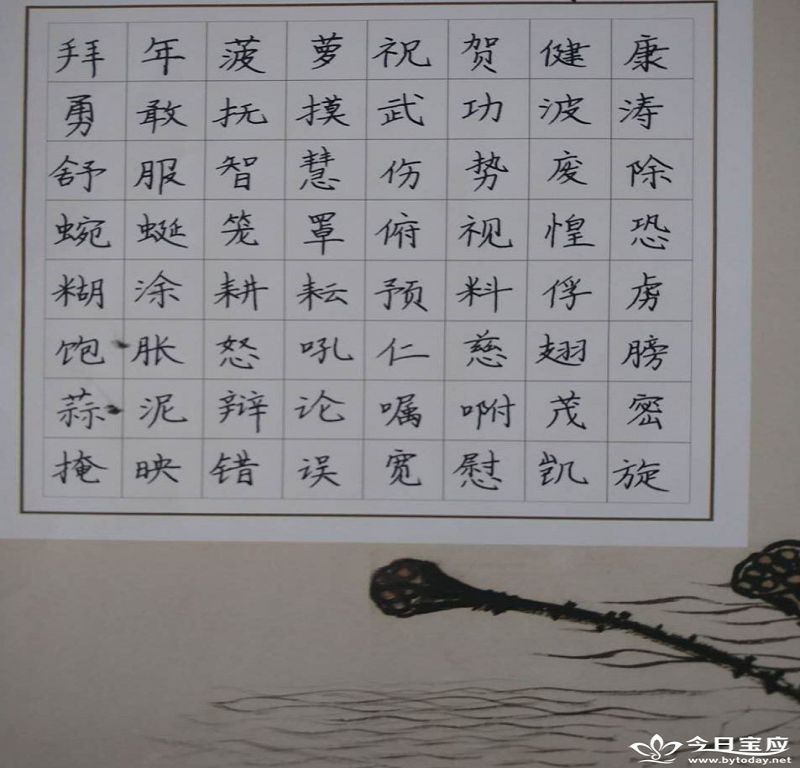 拜年菠萝祝贺健康
勇敢抚摸武功波涛
舒服智慧伤势废除
蜿蜒笼罩俯视惶恐
糊涂耕耘预料俘虏
饱胀怒吼仁慈翅膀
蒜泥辩论嘱咐茂密
掩映错误宽慰凯旋
今日宝应
www.bytoday.net